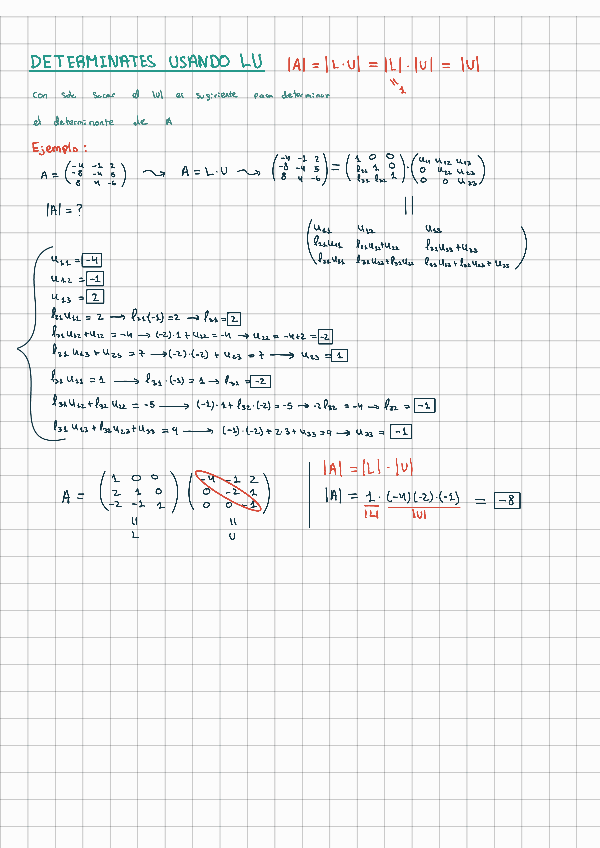 DETERMINATES USANDO LU |A| = |L·U| = |L|·|U| = |U|
" 1
Con solo sacar el |U| es sugiciente para determinar
el determinante de A
Ejemplo:
A = (-4 -1 2; -8 -4 5; 8 4 -6) ⟿ A = L·U ⟿ (-4 -1 2; -8 -4 5; 8 4 -6) = (1 0 0; l21 1 0; l31 l32 1)·(u11 u12 u13; 0 u22 u23; 0 0 u33)
|A| = ?
||
(u11 u12 u13
l21u11 l21u12+u22 l21u13+u23
l31u11 l31u12+l32u22 l31u13+l32u23+u33)
u11 = -4
u12 = -1
u13 = 2
l21u11 = 2 → l21(-1) = 2 → l21 = 2
l21u12+u22 = -4 → (-2)·1+u22 = -4 → u22 = -4+2 = -2
l21u13+u23 = 7 → (-2)·(-2)+u23 = 7 → u23 = 1
l31u11 = 1 → l31·(-1) = 1 → l31 = -2
l31u12+l32u22 = -5 → (-1)·1+l32·(-2) = -5 → -2l32 = -4 → l32 = -1
l31u13+l32u23+u33 = 9 → (-1)·(-2)+2·3+u33 = 9 → u33 = -1
A = (1 0 0; 2 1 0; -2 -1 1) (-4 -1 2; 0 -2 1; 0 0 -1)
|| ||
L U
|A| = |L|·|U|
|A| = 1·(-4)(-2)·(-1) = -8
|L| |U|